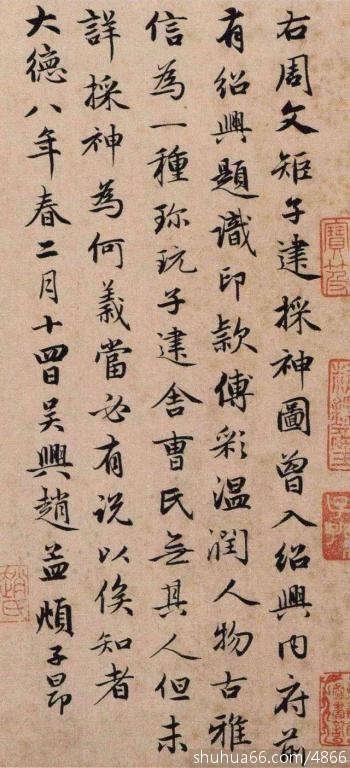 右周文矩子建採神圖曾入紹興内府前
有紹興題識印款傅彩温潤人物古雅
信為一種珎玩子建舍曹氏無其人但未
詳採神為何義當必有説以俟知者
大德八年春二月十四日吴興趙孟頫子昂
趙氏
shuhua66.com/4866